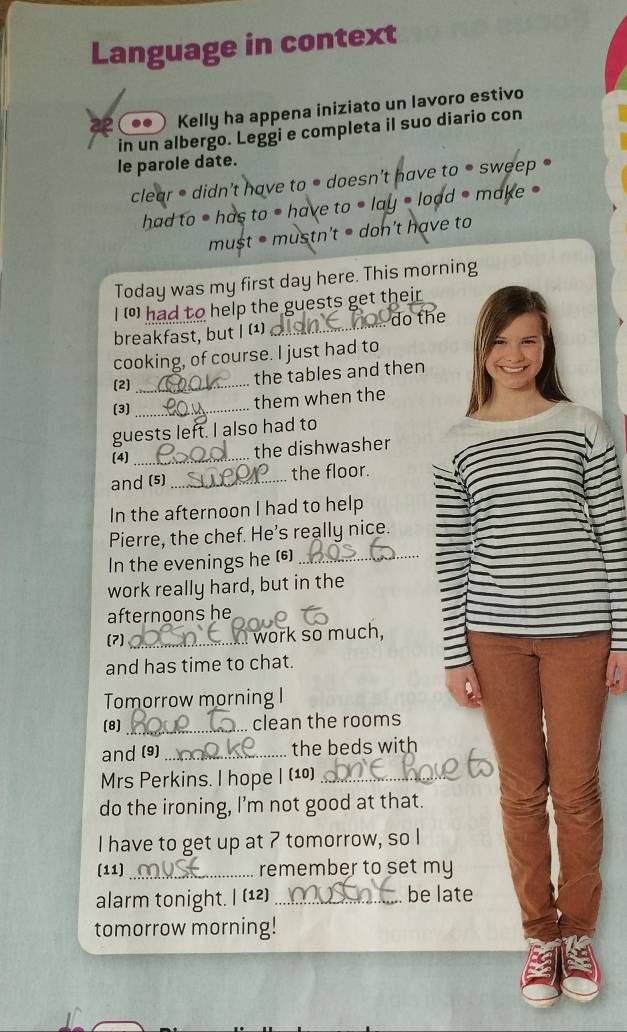 Language in context
22 Kelly ha appena iniziato un lavoro estivo
in un albergo. Leggi e completa il suo diario con
le parole date.
clear • didn't have to • doesn't have to • sweep •
had to • has to • have to • lay • load • make •
must • mustn't • don't have to
Today was my first day here. This morning
I (0) had to help the guests get their
breakfast, but I (1) didn't have to do the
cooking, of course. I just had to
(2) clear the tables and then
(3) lay them when the
guests left. I also had to
(4) load the dishwasher
and (5) sweep the floor.
In the afternoon I had to help
Pierre, the chef. He's really nice.
In the evenings he (6) has to
work really hard, but in the
afternoons he
(7) doesn't have to work so much,
and has time to chat.
Tomorrow morning I
(8) have to clean the rooms
and (9) make the beds with
Mrs Perkins. I hope I (10) don't have to
do the ironing, I'm not good at that.
I have to get up at 7 tomorrow, so I
(11) must remember to set my
alarm tonight. I (12) mustn't be late
tomorrow morning!